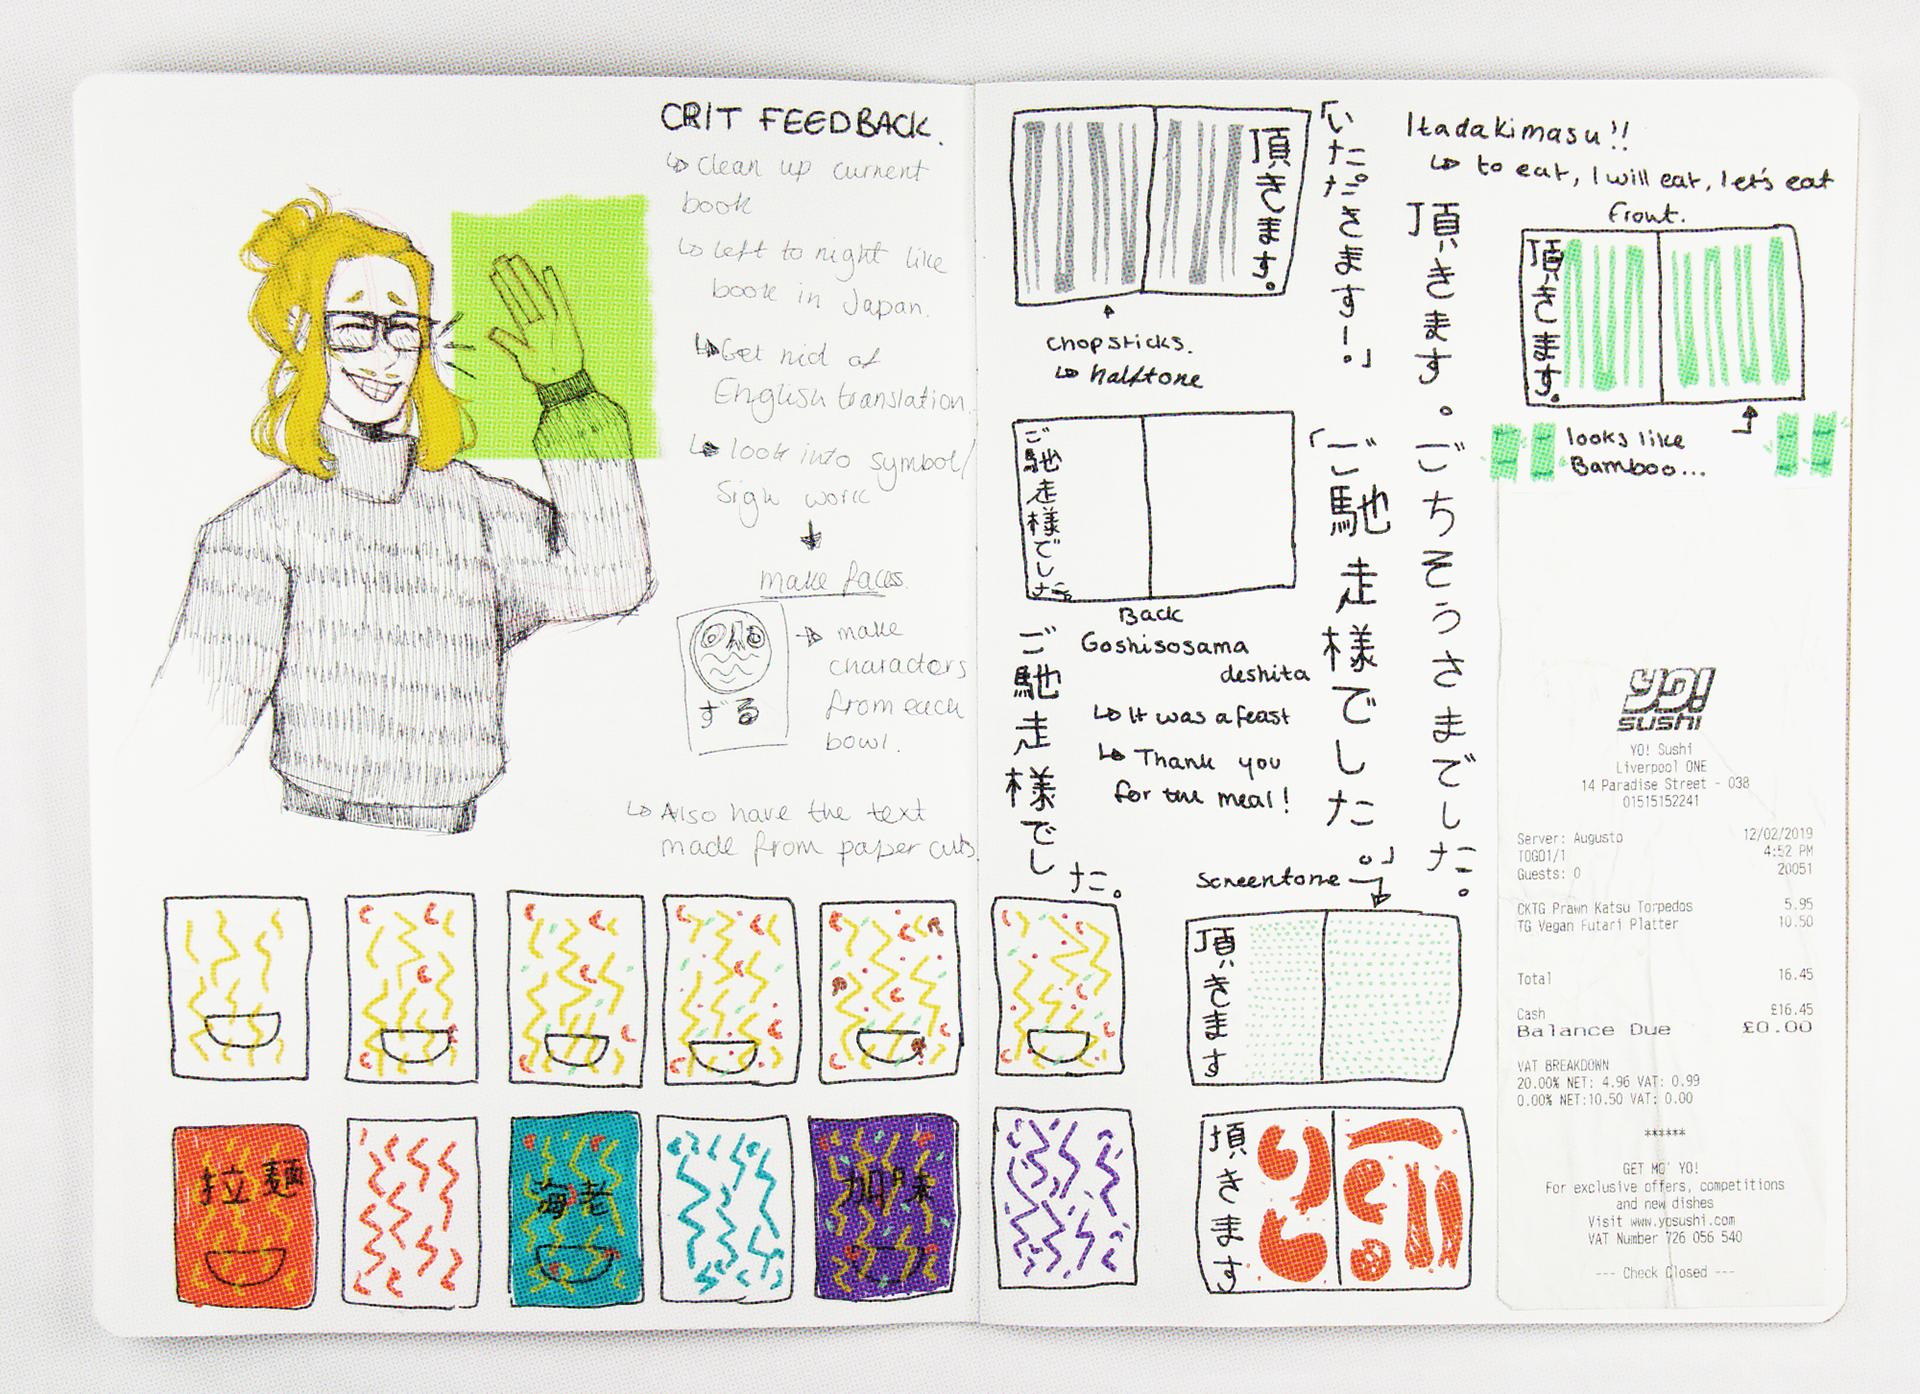 CRIT FEEDBACK.
↳ clean up current
book
↳ left to right like
book in Japan.
↳ Get rid of
English translation.
↳ look into symbol/
sign work
make faces.
→ make
characters
from each
bowl.
ずる
↳ Also have the text
made from paper cuts.
拉麺
海老
頂きます。
「いただきます!。」
chopsticks.
↳ halftone
Itadakimasu!!
↳ to eat, I will eat, let's eat
front.
頂きます。
頂きます。
looks like
Bamboo...
ご馳走様でした
Back
Goshisosama
deshita
↳ It was a feast
↳ Thank you
for the meal!
ご馳走様でした。
「ご馳走様でした。」
ごちそうさまでした。
screentone
頂きます
頂きます
YO!
sushi
YO! Sushi
Liverpool ONE
14 Paradise Street - 038
01515152241
Server: Augusto 12/02/2019
TOGO1/1 4:52 PM
Guests: 0 20051
CKTG Prawn Katsu Torpedos 5.95
TG Vegan Futari Platter 10.50
Total 16.45
Cash £16.45
Balance Due £0.00
VAT BREAKDOWN
20.00% NET: 4.96 VAT: 0.99
0.00% NET:10.50 VAT: 0.00
******
GET MO' YO!
For exclusive offers, competitions
and new dishes
Visit www.yosushi.com
VAT Number 726 056 540
--- Check Closed ---